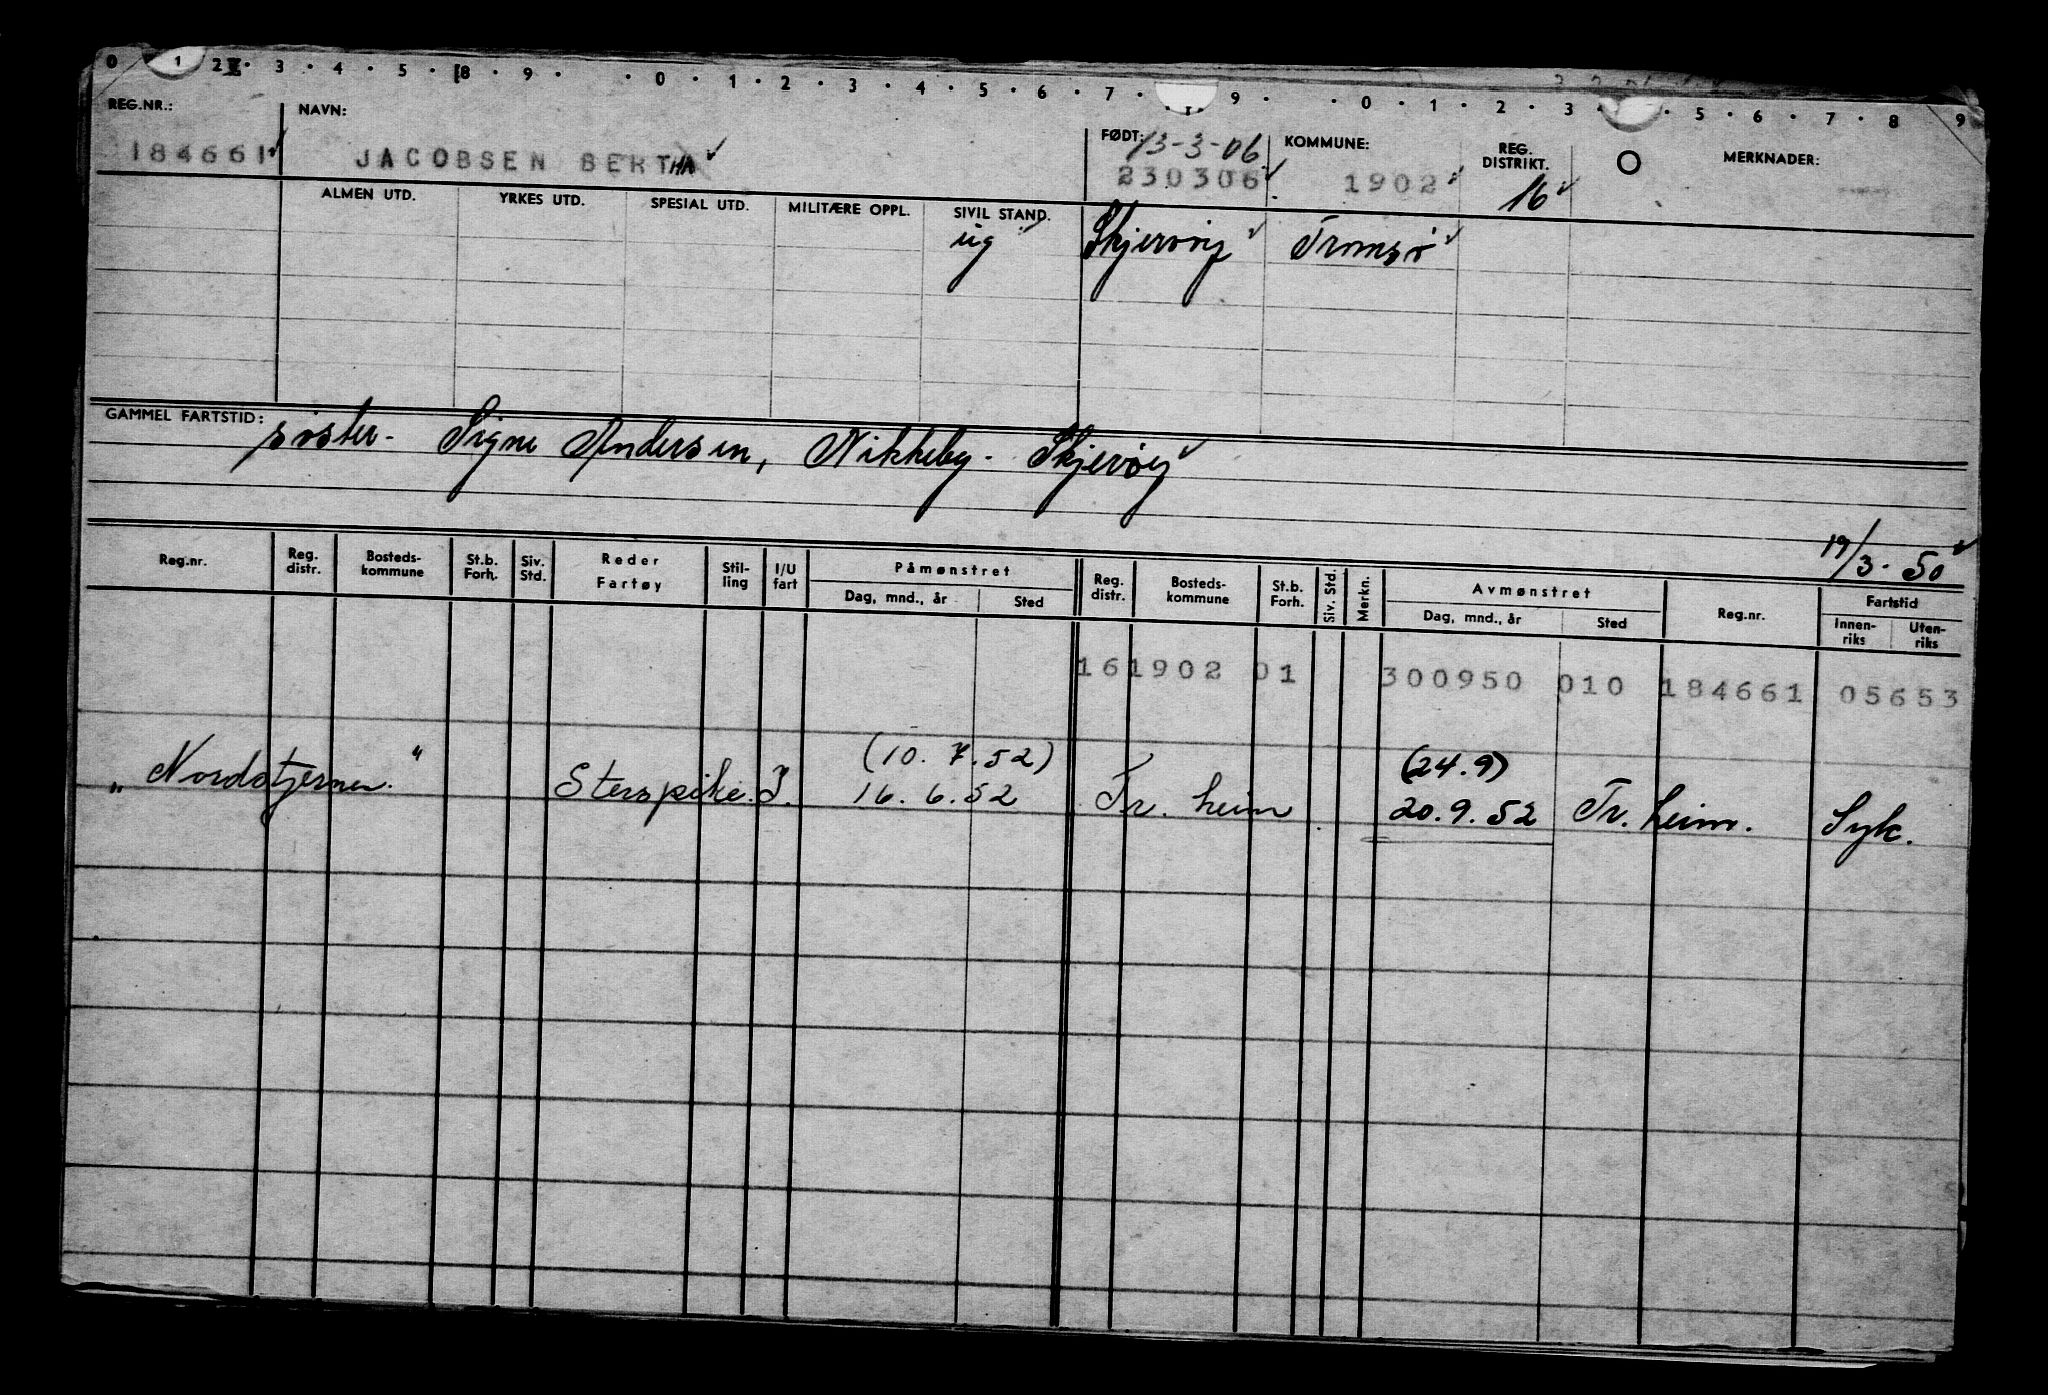 0 1 2 · 3 · 4 · 5 · 8 · 9 · · 0 · 1 · 2 · 3 · 4 · 5 · 6 · 7 · 9 · · 0 · 1 · 2 · 3 · 5 · 6 · 7 · 8 · 9
REG.NR.: NAVN: FØDT: 13-3-06 KOMMUNE: REG. DISTRIKT. MERKNADER:
184661 JACOBSEN BERTHA 230306 1902 16
ALMEN UTD. YRKES UTD. SPESIAL UTD. MILITÆRE OPPL. SIVIL STAND.
ug Skjervøy Tromsø
GAMMEL FARTSTID:
søster - Signe Andersen, Nikkeby - Skjervøy
19/3 - 50
Reg.nr. Reg. distr. Bosteds-kommune St.b. Forh. Siv. Std. Reder Fartøy Stil-ling I/U fart Påmønstret Reg. distr. Bosteds-kommune St.b. Forh. Siv. Std. Merkn. Avmønstret Reg.nr. Fartstid
Dag, mnd., år Sted Dag, mnd., år Sted Innen-riks Uten-riks
16 1902 01 300950 010 184661 05653
(10. 7. 52) (24. 9)
„Nordstjernen." Sterspike. I. 16. 6. 52 Tr. heim 20. 9. 52 Tr. heim. Syk.